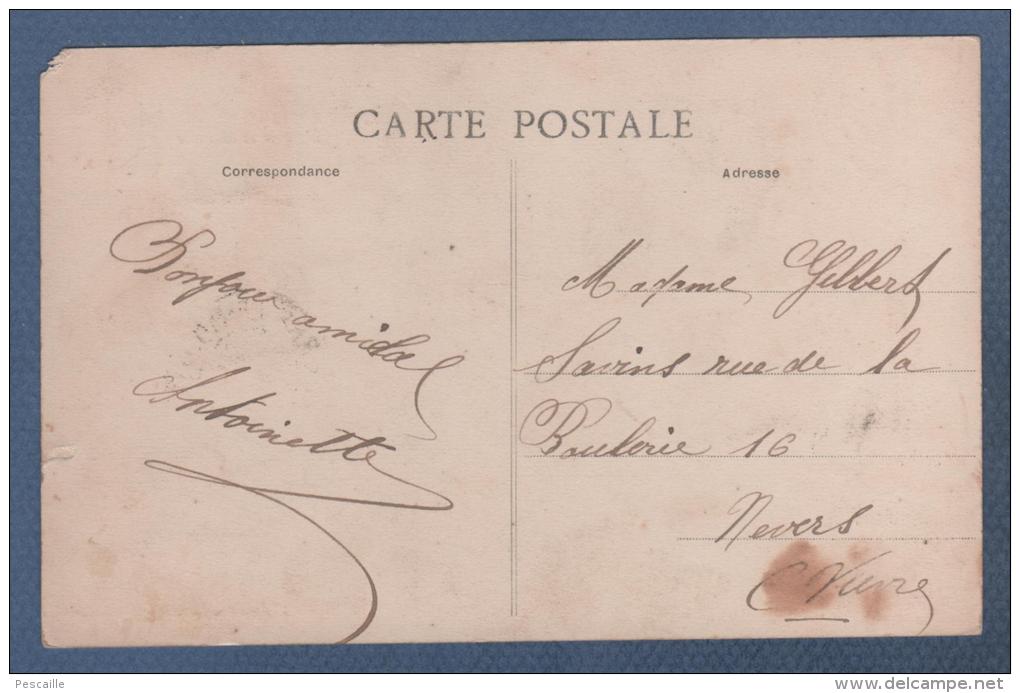 CARTE POSTALE
Correspondance
Bonjour amical
Antoinette
Adresse
Madame Gilbert
Savins rue de la
Boulerie 16
Nevers
Nievre
Pescaille
www.delcampe.net